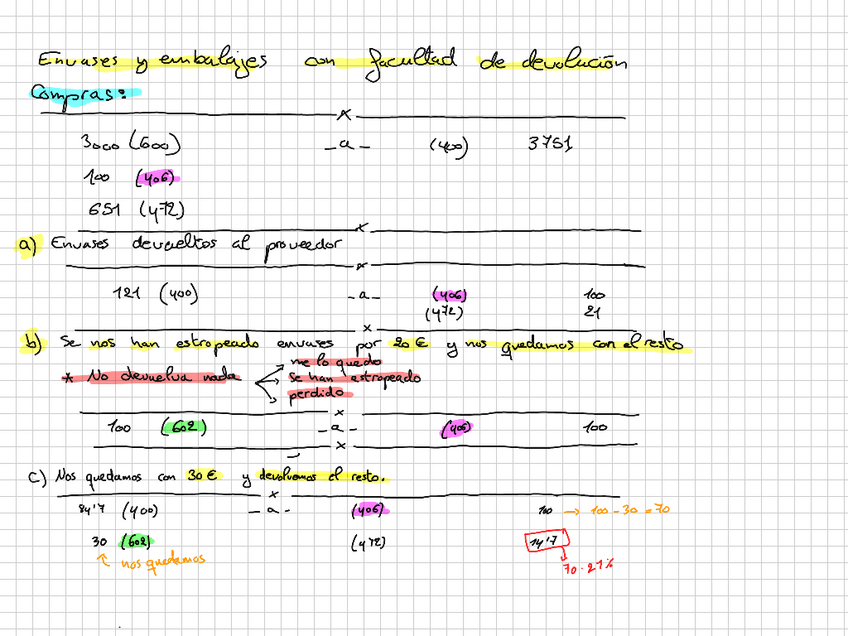 Envases y embalajes con facultad de devolución
Compras:
3000 (600) -a- (400) 3751
100 (406)
651 (472)
a) Envases devueltos al proveedor
121 (400) -a- (406) 100
(472) 21
b) Se nos han estropeado envases por 20€ y nos quedamos con el resto
me lo quedo
* No devuelva nada se han estropeado
perdido
100 (602) -a- (406) 100
c) Nos quedamos con 30€ y devolvemos el resto.
84'7 (400) -a- (406) 100 → 100 - 30 = 70
30 (602) (472) 14'7
nos quedamos 70·21%